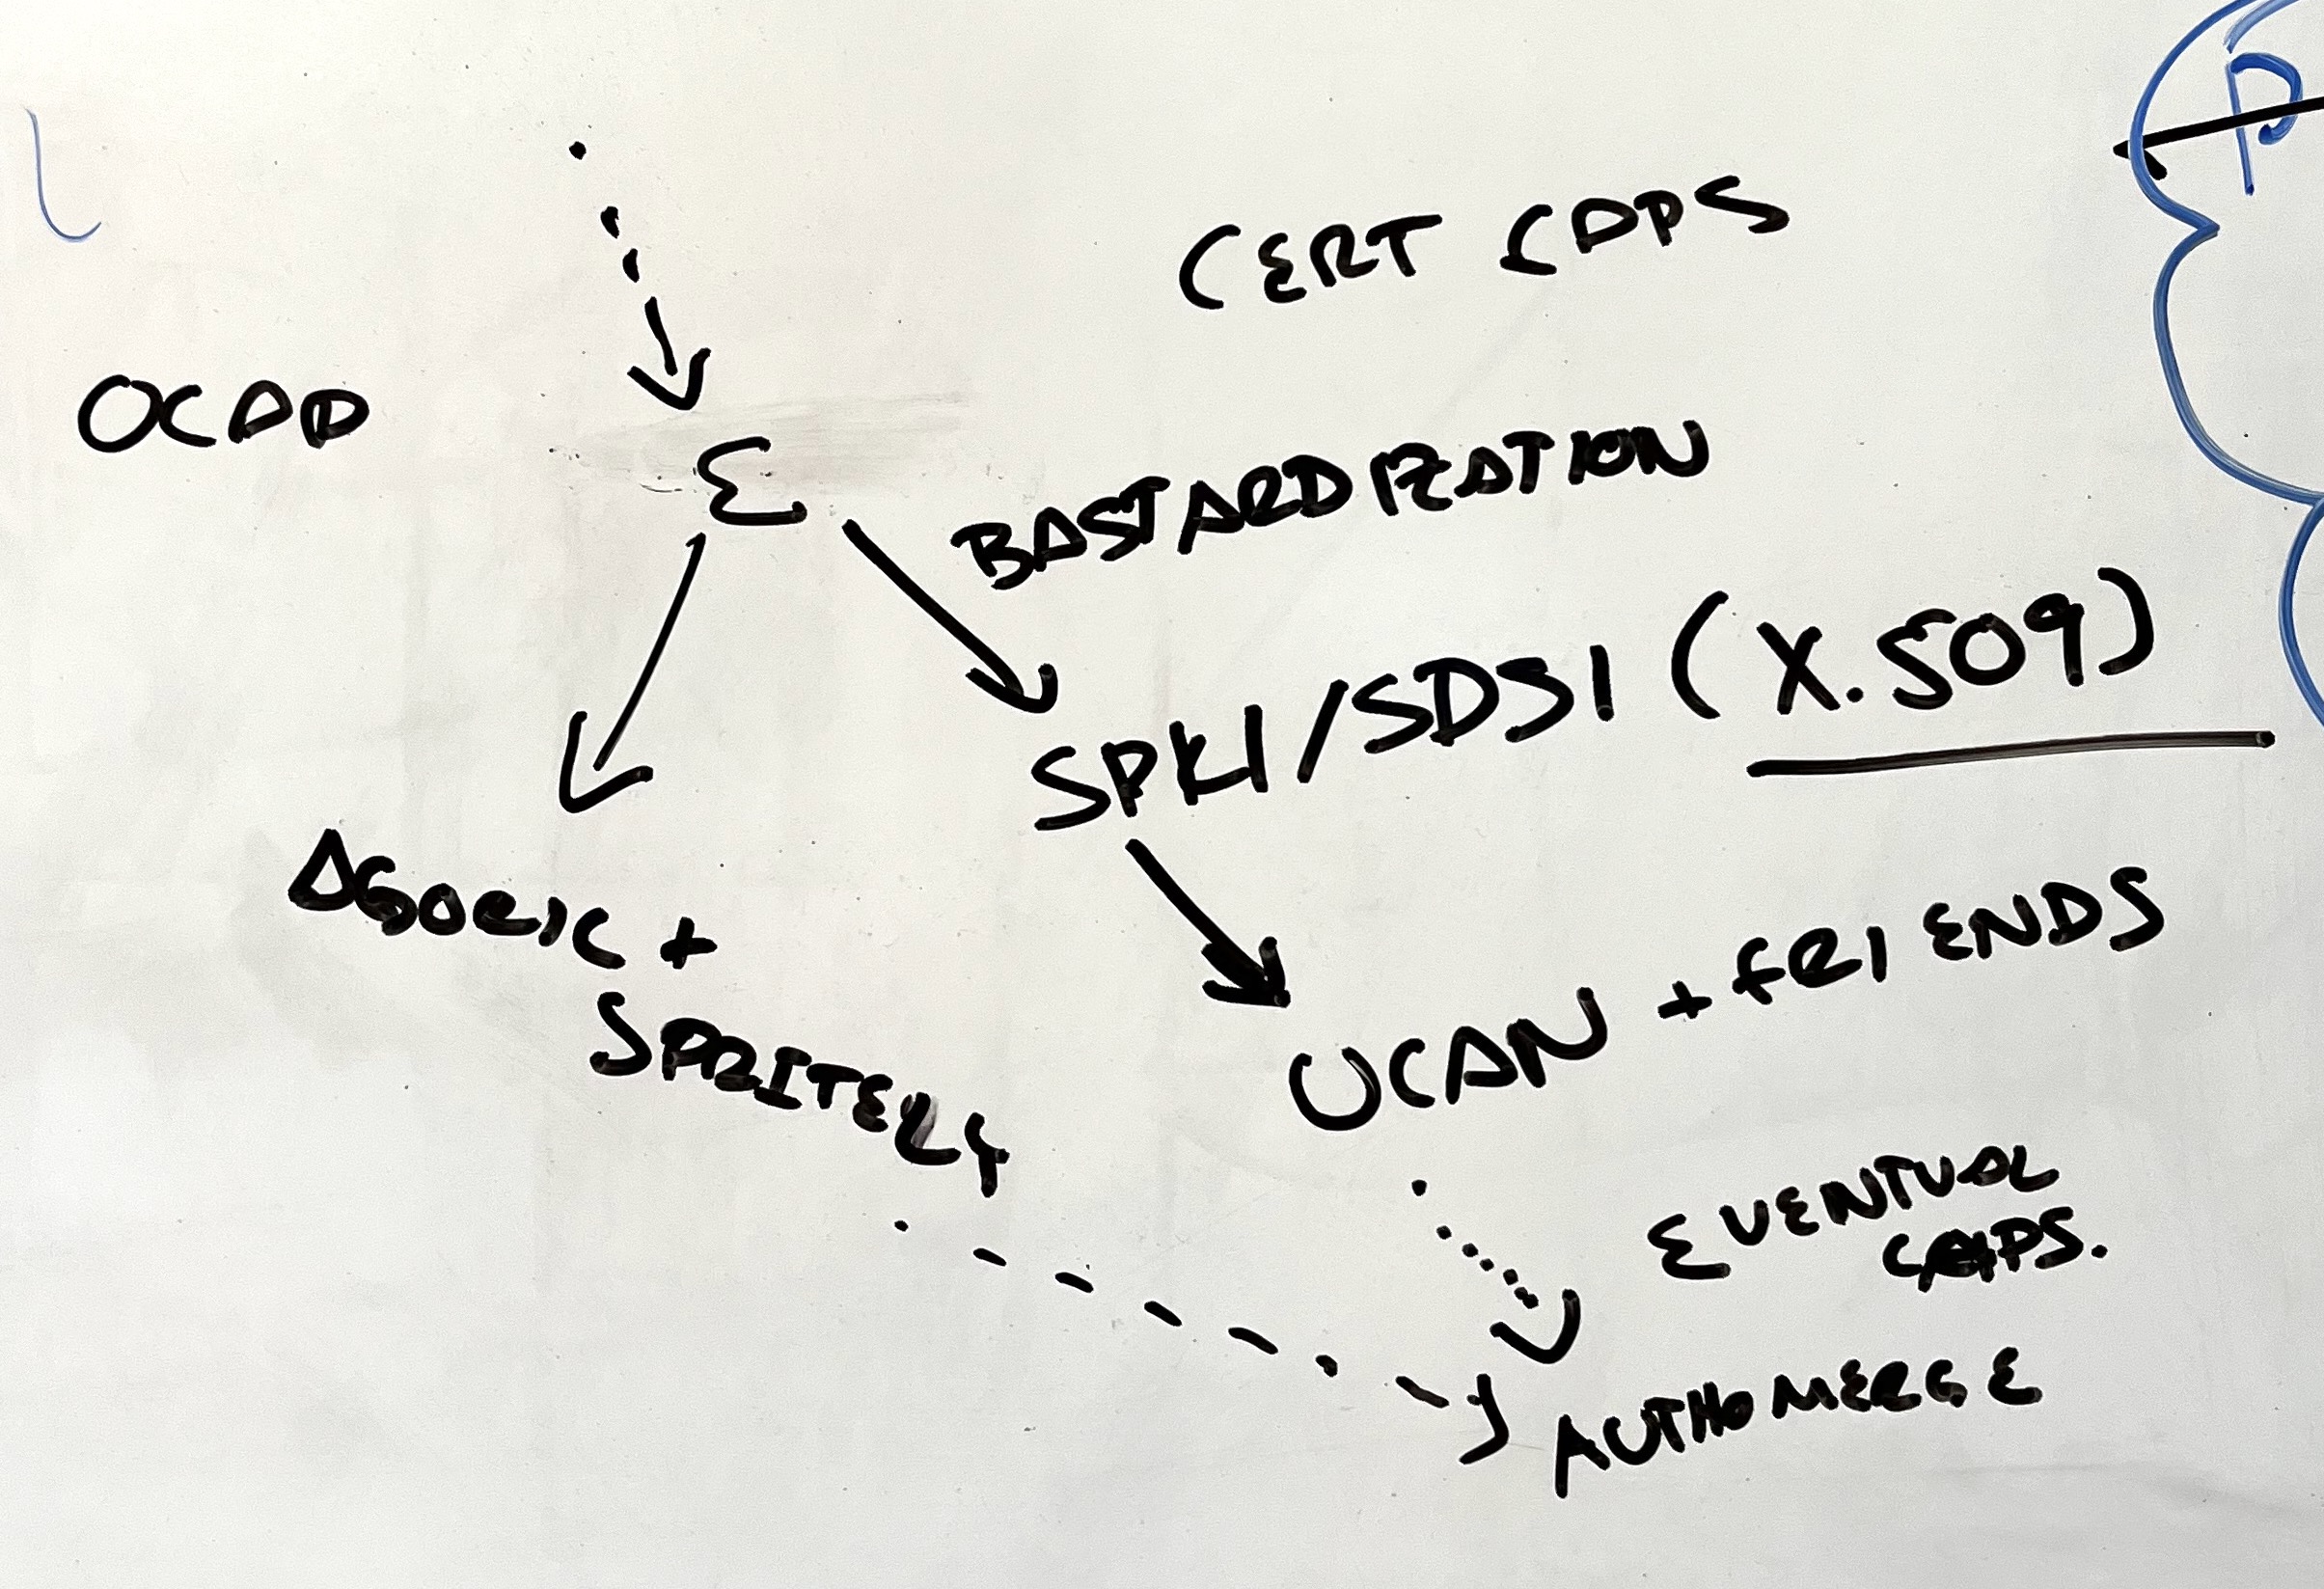 P
CERT CAPS
OCAP
E
BASTARDIZATION
SPKI/SDSI (X.509)
AGORIC +
SPRITELY
UCAN + FRIENDS
EVENTUAL
CAPS.
AUTHOMERGE